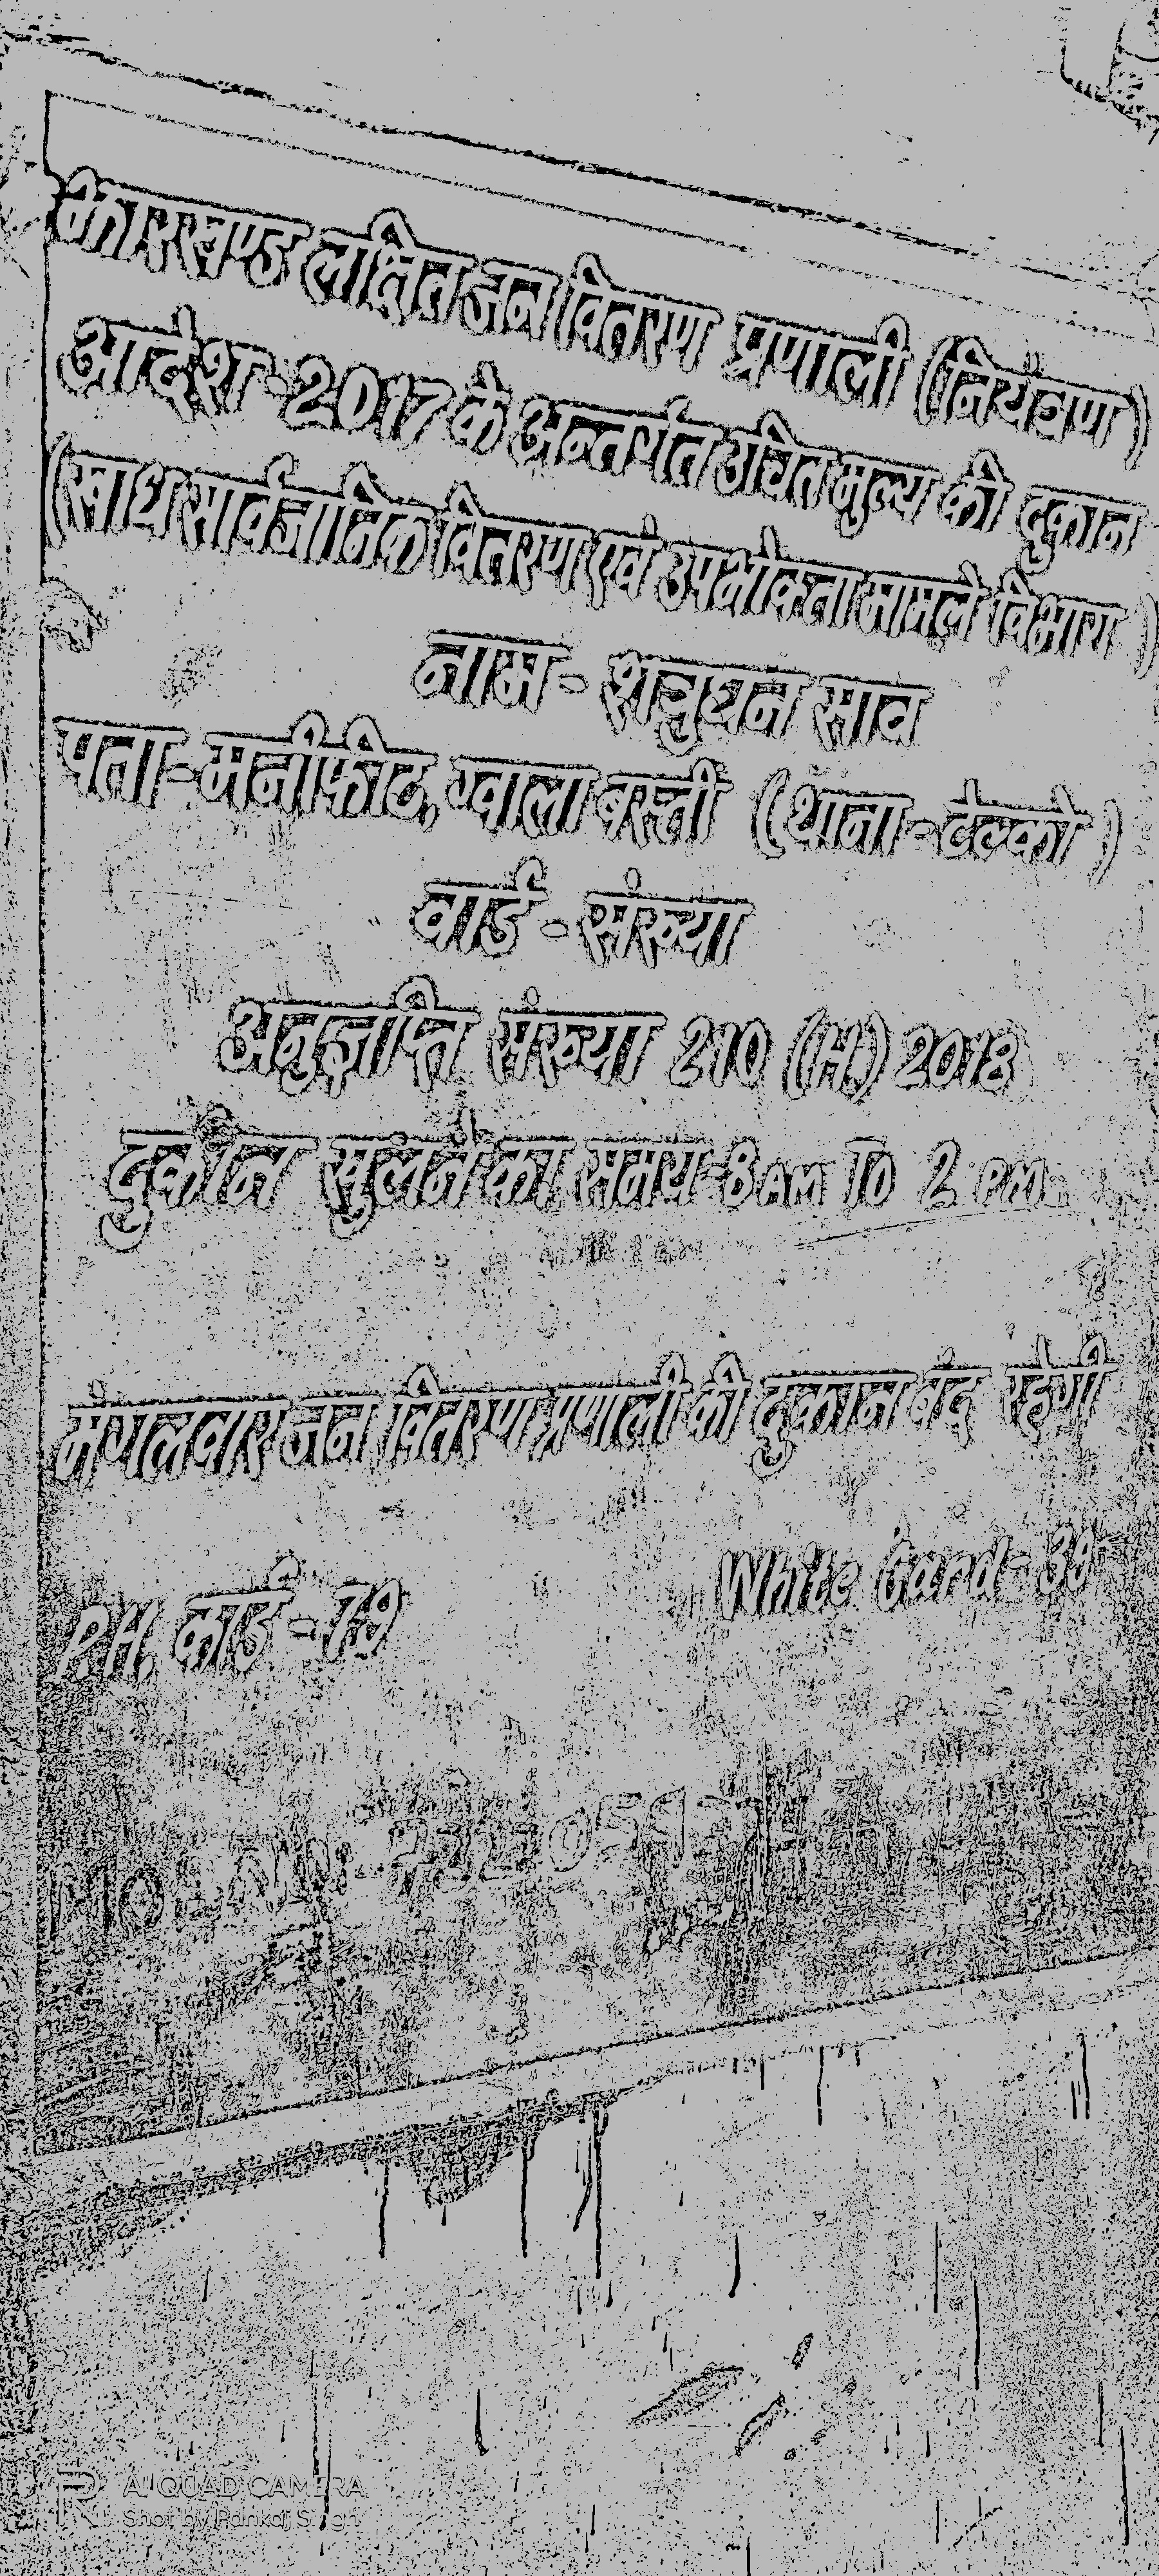 झारखण्ड लक्षित जन वितरण प्रणाली (नियंत्रण)
आदेश-2017 के अन्तर्गत उचित मुल्य की दुकान
(खाद्य सार्वजानिक वितरण एवं उपभोक्ता मामले विभाग)
नाम - शत्रुघन साव
पता - मनीफीट, ग्वाला बस्ती (थाना - टेल्को)
वार्ड - संख्या
अनुज्ञप्ति संख्या 210 (H) 2018
दुकान खुलने का समय - 8 AM TO 2 PM
मंगलवार जन वितरण प्रणाली की दुकान बंद रहेगी
White Card - 39
P.H. कार्ड - 79
AI QUAD CAMERA
Shot by Pankaj Singh